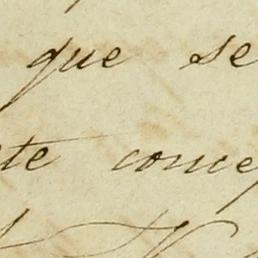 que se
te conce